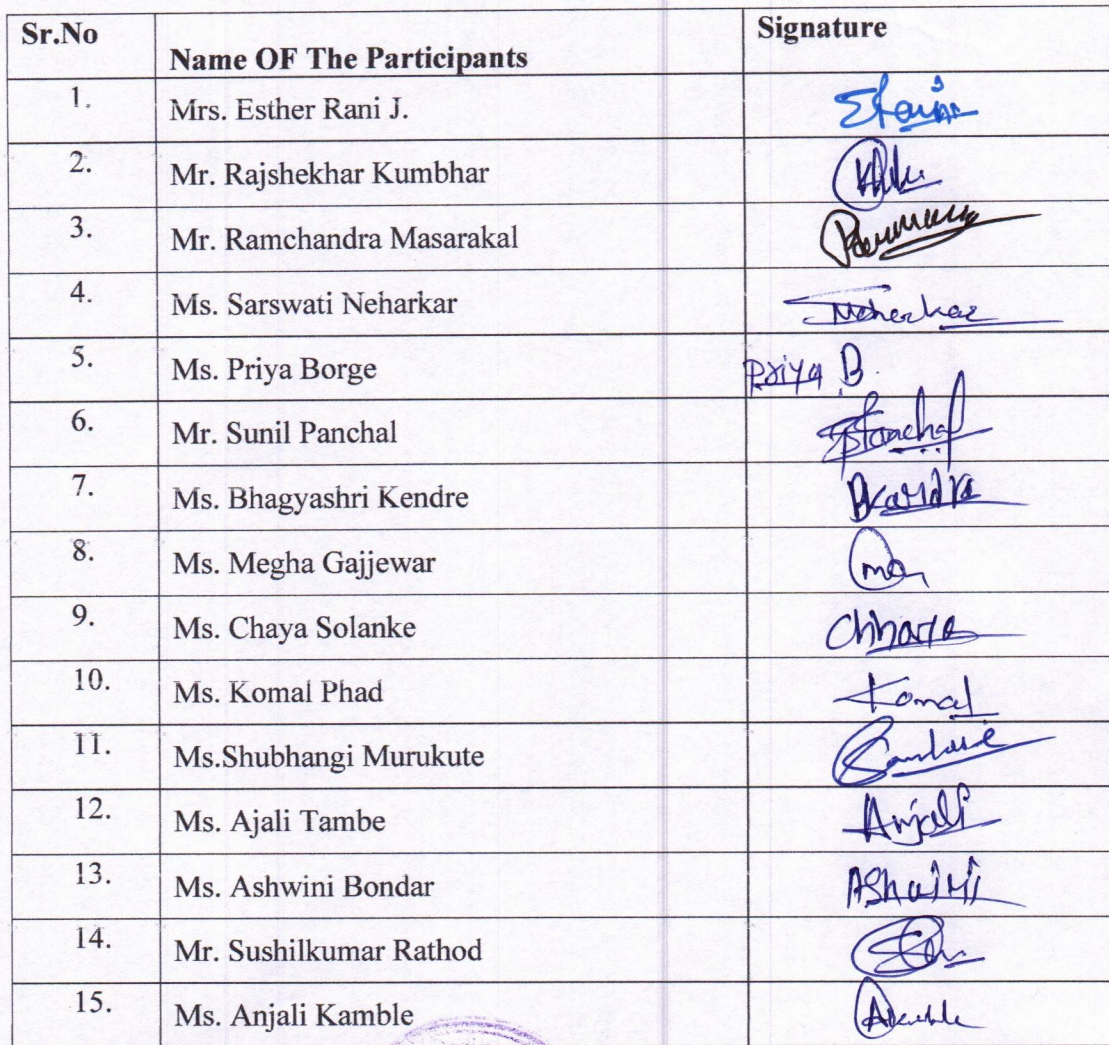 Sr.No Name OF The Participants Signature
1. Mrs. Esther Rani J.
2. Mr. Rajshekhar Kumbhar
3. Mr. Ramchandra Masarakal
4. Ms. Sarswati Neharkar Neharkar
5. Ms. Priya Borge Priya B.
6. Mr. Sunil Panchal SPanchal
7. Ms. Bhagyashri Kendre
8. Ms. Megha Gajjewar
9. Ms. Chaya Solanke Chhaya
10. Ms. Komal Phad Komal
11. Ms.Shubhangi Murukute
12. Ms. Ajali Tambe Anjali
13. Ms. Ashwini Bondar AShwini
14. Mr. Sushilkumar Rathod
15. Ms. Anjali Kamble AKamble